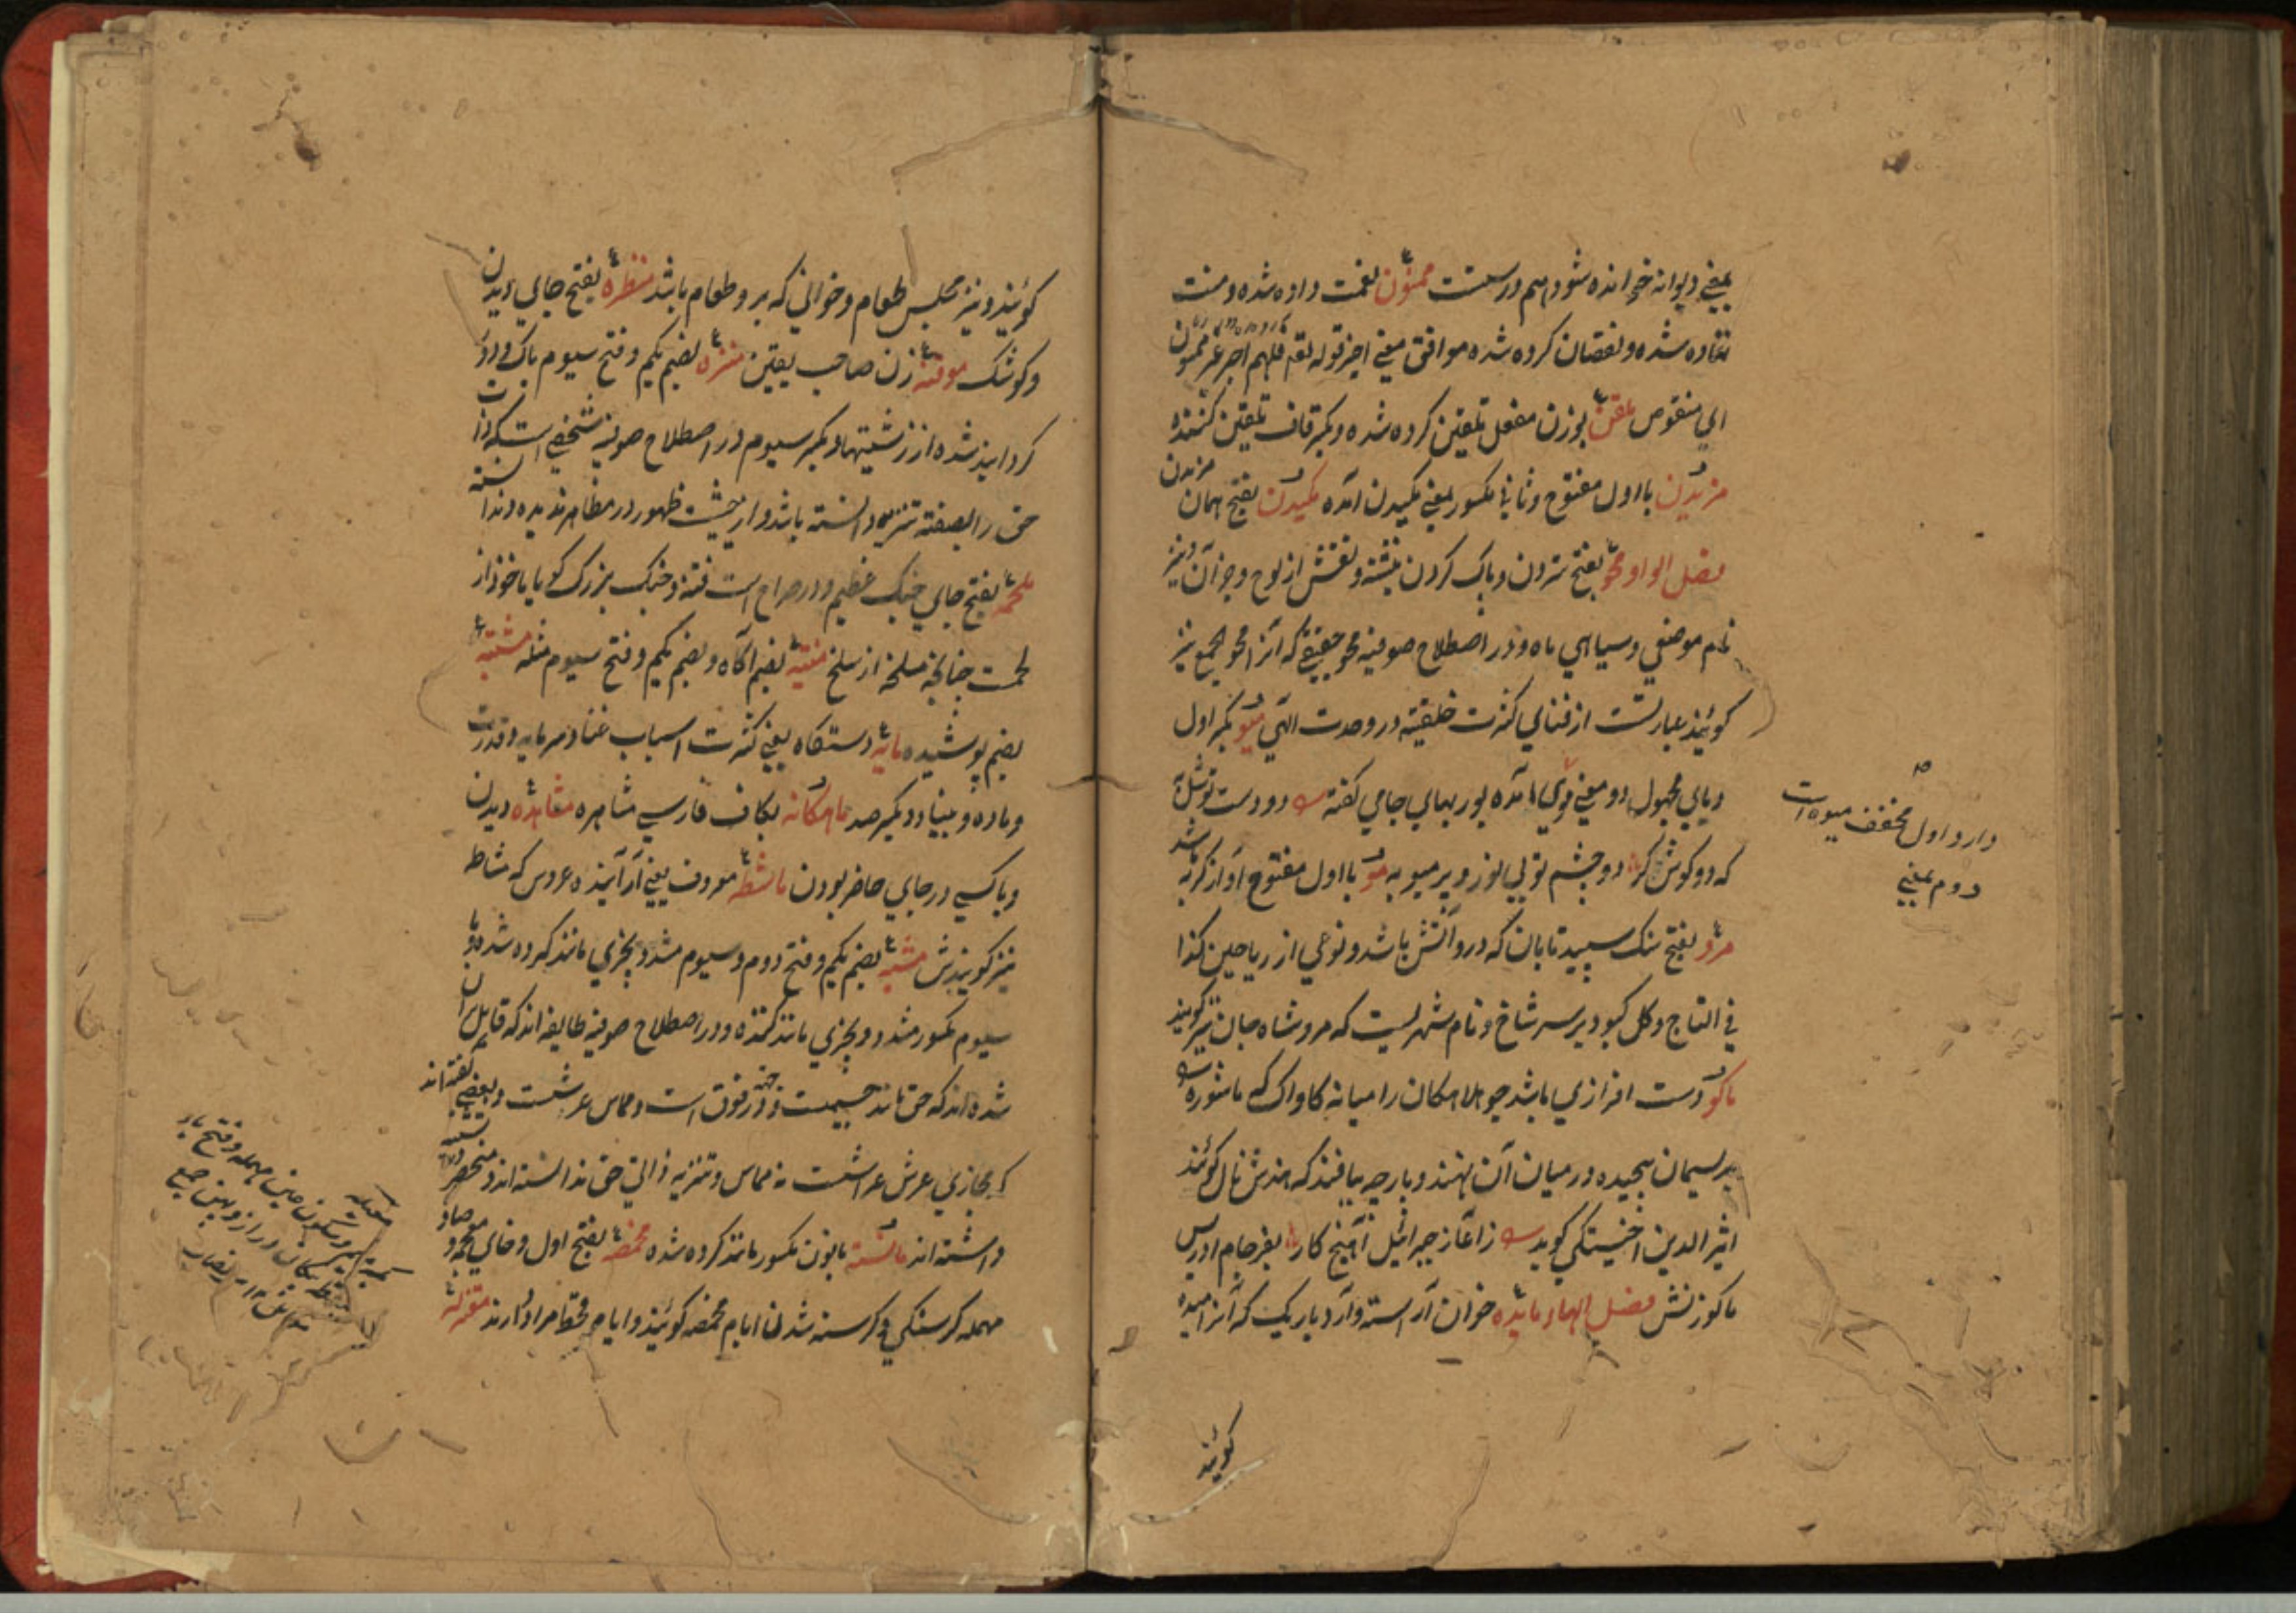 بمعنی دیوانه خوانده شود هم درست ممنون نعمت داده شده و منت
نهاده شده و نقصان کرده شده موافق معنی اخیر قوله تع فلهم اجر غیر ممنون
ای منقوص ملقن بوزن مفعل تلقین کرده شده و بکسر قاف تلقین کننده
مزیدن با اول مفتوح و ثانی مکسور بمعنی مکیدن آمده مکیدن بفتح همان مزیدن
فصل الواو محو بفتح ستردن و پاک کردن نبشته و نقش از لوح و جز آن و نیز
نام موضعی و سیاهی ماه و در اصطلاح صوفیه محو حقیقی که آنرا محو الجمع نیز
کویند عبارتست از فنای کثرت خلقیه در وحدت الهی میو بکسر اول
و یای مجهول دو معنی آمده پور بهای جامی کفته
که دو کوش کر دو چشم تو بی نور و بر میو به مو با اول مفتوح آواز کربه باشد
مرو بفتح سنک سپید تابان که درو آتش باشد و نوعی از ریاحین کذا
فی التاج و کل کبود بر سر شاخ و نام شهریست که مرو شاه جان نیز کویند
ماکو دست افزازی باشد جولاهکان را میانه کاواک که ماشوره
بریسمان پیچیده در میان آن نهند و پارچه ببافند که هندش نال کویند
اثیر الدین اخسیکتی کوید ز آغاز جبرائیل آهنج کار بفرجام ادریس
ماکو زنش فصل الهاء مائده خوان آراسته و آرد باریک که آنرا میده
کویند
وار و اول مخفف میوه است
دوم بمعنی
کویند و نیز مجلس طعام و خوانی که برو طعام باشد منظره بفتح جای دیدن
و کوشک موقنه زن صاحب یقین منزه بضم یکم و فتح سیوم پاک و دور
کردانیده شده از زشتیها و بکسر سیوم در اصطلاح صوفیه شخصی است که ذات
حق را بصفة تنزیه دانسته باشد و از حیثیت ظهور در مظاهر ندیده و ندانسته
ملحمه بفتح جای جنک عظیم و در صراح است فتنه و جنک بزرک کویا ماخوذ از
لحمت چنانچه مسلخه از سلخ منتبه بضم آکاه و بضم یکم و فتح سیوم مثله مشتبه
بضم پوشیده مایه دستکاه یعنی کثرت اسباب غنا و سرمایه و قدرت
و ماده و بنیاد و دیکر صد ماهکانه بکاف فارسی مشاهره مشاهده دیدن
و با کسی در جای حاضر بودن ماشطه معروف یعنی آراینده عروس که مشاطه
نیز کویندش مشبه بضم یکم و فتح دوم و سیوم مشدد بچیزی مانند کرده شده و با
سیوم مکسور مشدد و بچیزی مانند کننده و در اصطلاح صوفیه طایفه اند که قایل آن
شده اند که حق مانند جسمیت و در جهة فوق است و مماس عرشست و بعضی کفته اند
که بجازی عرش عرشست نه مماس و تنزیه ذاتی حق ندانسته اند و منحصر در تشبیه
داشته اند مانسته با نون مکسور مانند کرده شده مخمصه بفتح اول و خای معجمه و صاد
مهمله کرسنکی و کرسنه شدن ایام مخمصه کویند و ایام قحط مراد دارند